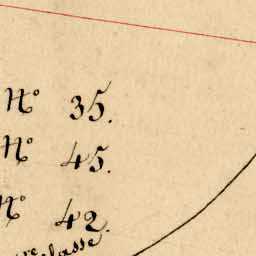 N.° 35.
N.° 45.
N.° 42.
re classe